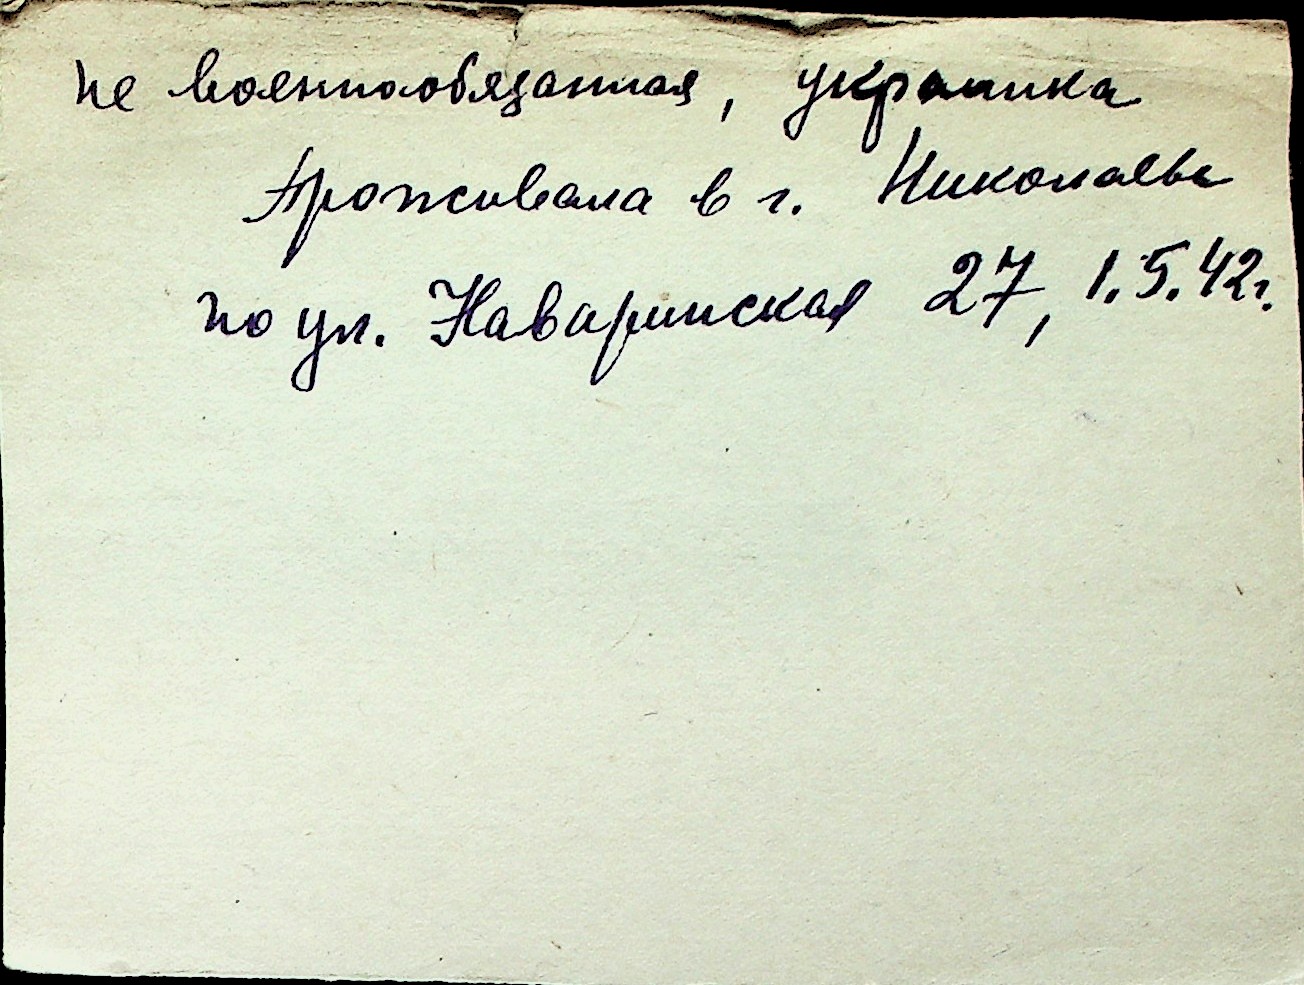 не военнообязанная, украинка
Проживала в г. Николаеве
по ул. Наваринская 27, 1.5.42г.